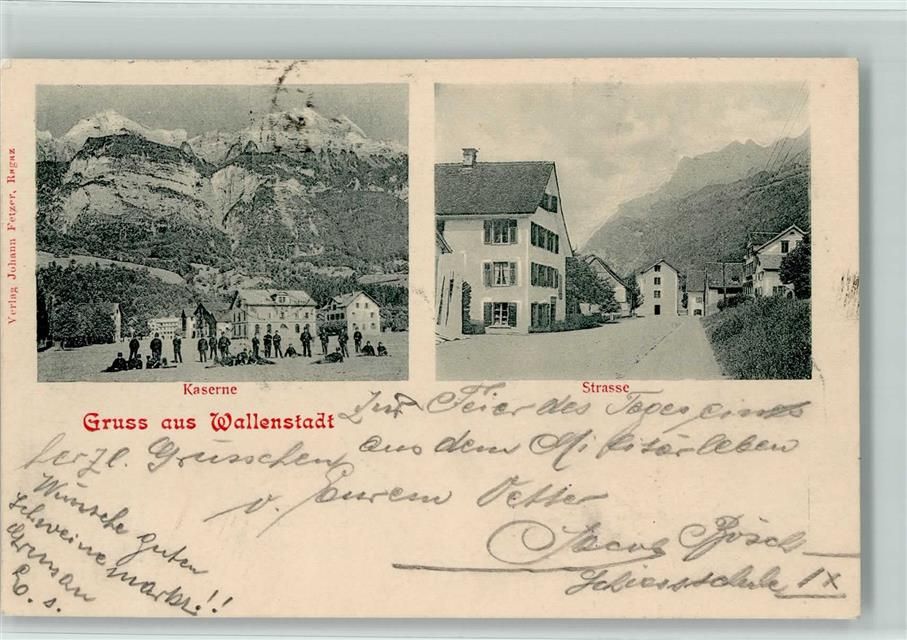 Verlag Johann Fetzer, Ragaz
Kaserne
Strasse
Gruss aus Wallenstadt
Zur Feier des Tages eines
herzl. Grüsschen aus dem Militärleben
v. Eurem Vetter
Jacob Bösch
Schiessschule IX
Wünsche guten
Schweinemarkt!!
Gruss an